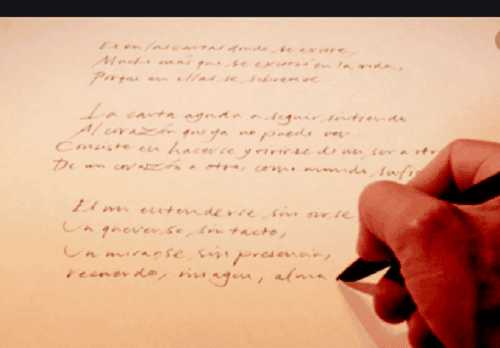 Es en las cartas donde se existe,
Mucho más que se existió en la vida,
Porque en ellas se
La carta ayuda a seguir sintiendo
Al corazón que ya no puede ver
Consiste en hacerse y vivirse de un ser a
De un corazón a otro, como mundo
Es un entenderse sin oirse
Un quererse sin tacto,
Un mirarse sin presencia,
recuerdo, imagen, alma